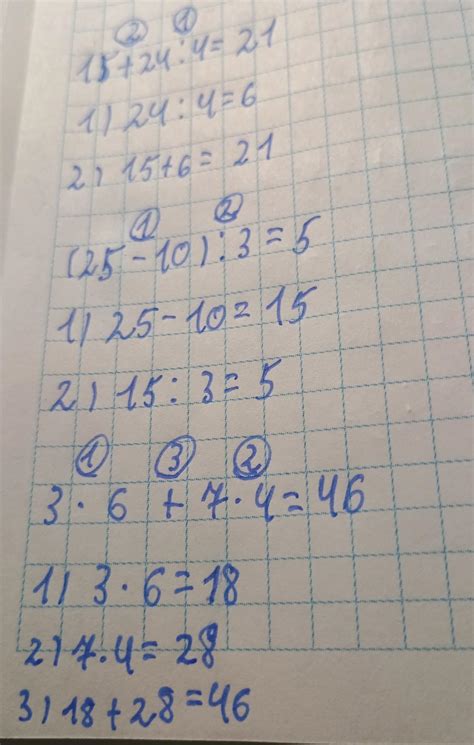 ② ①
15+24:4=21
1) 24:4=6
2) 15+6=21
① ②
(25-10):3=5
1) 25-10=15
2) 15:3=5
① ③ ②
3·6+7·4=46
1) 3·6=18
2) 7·4=28
3) 18+28=46